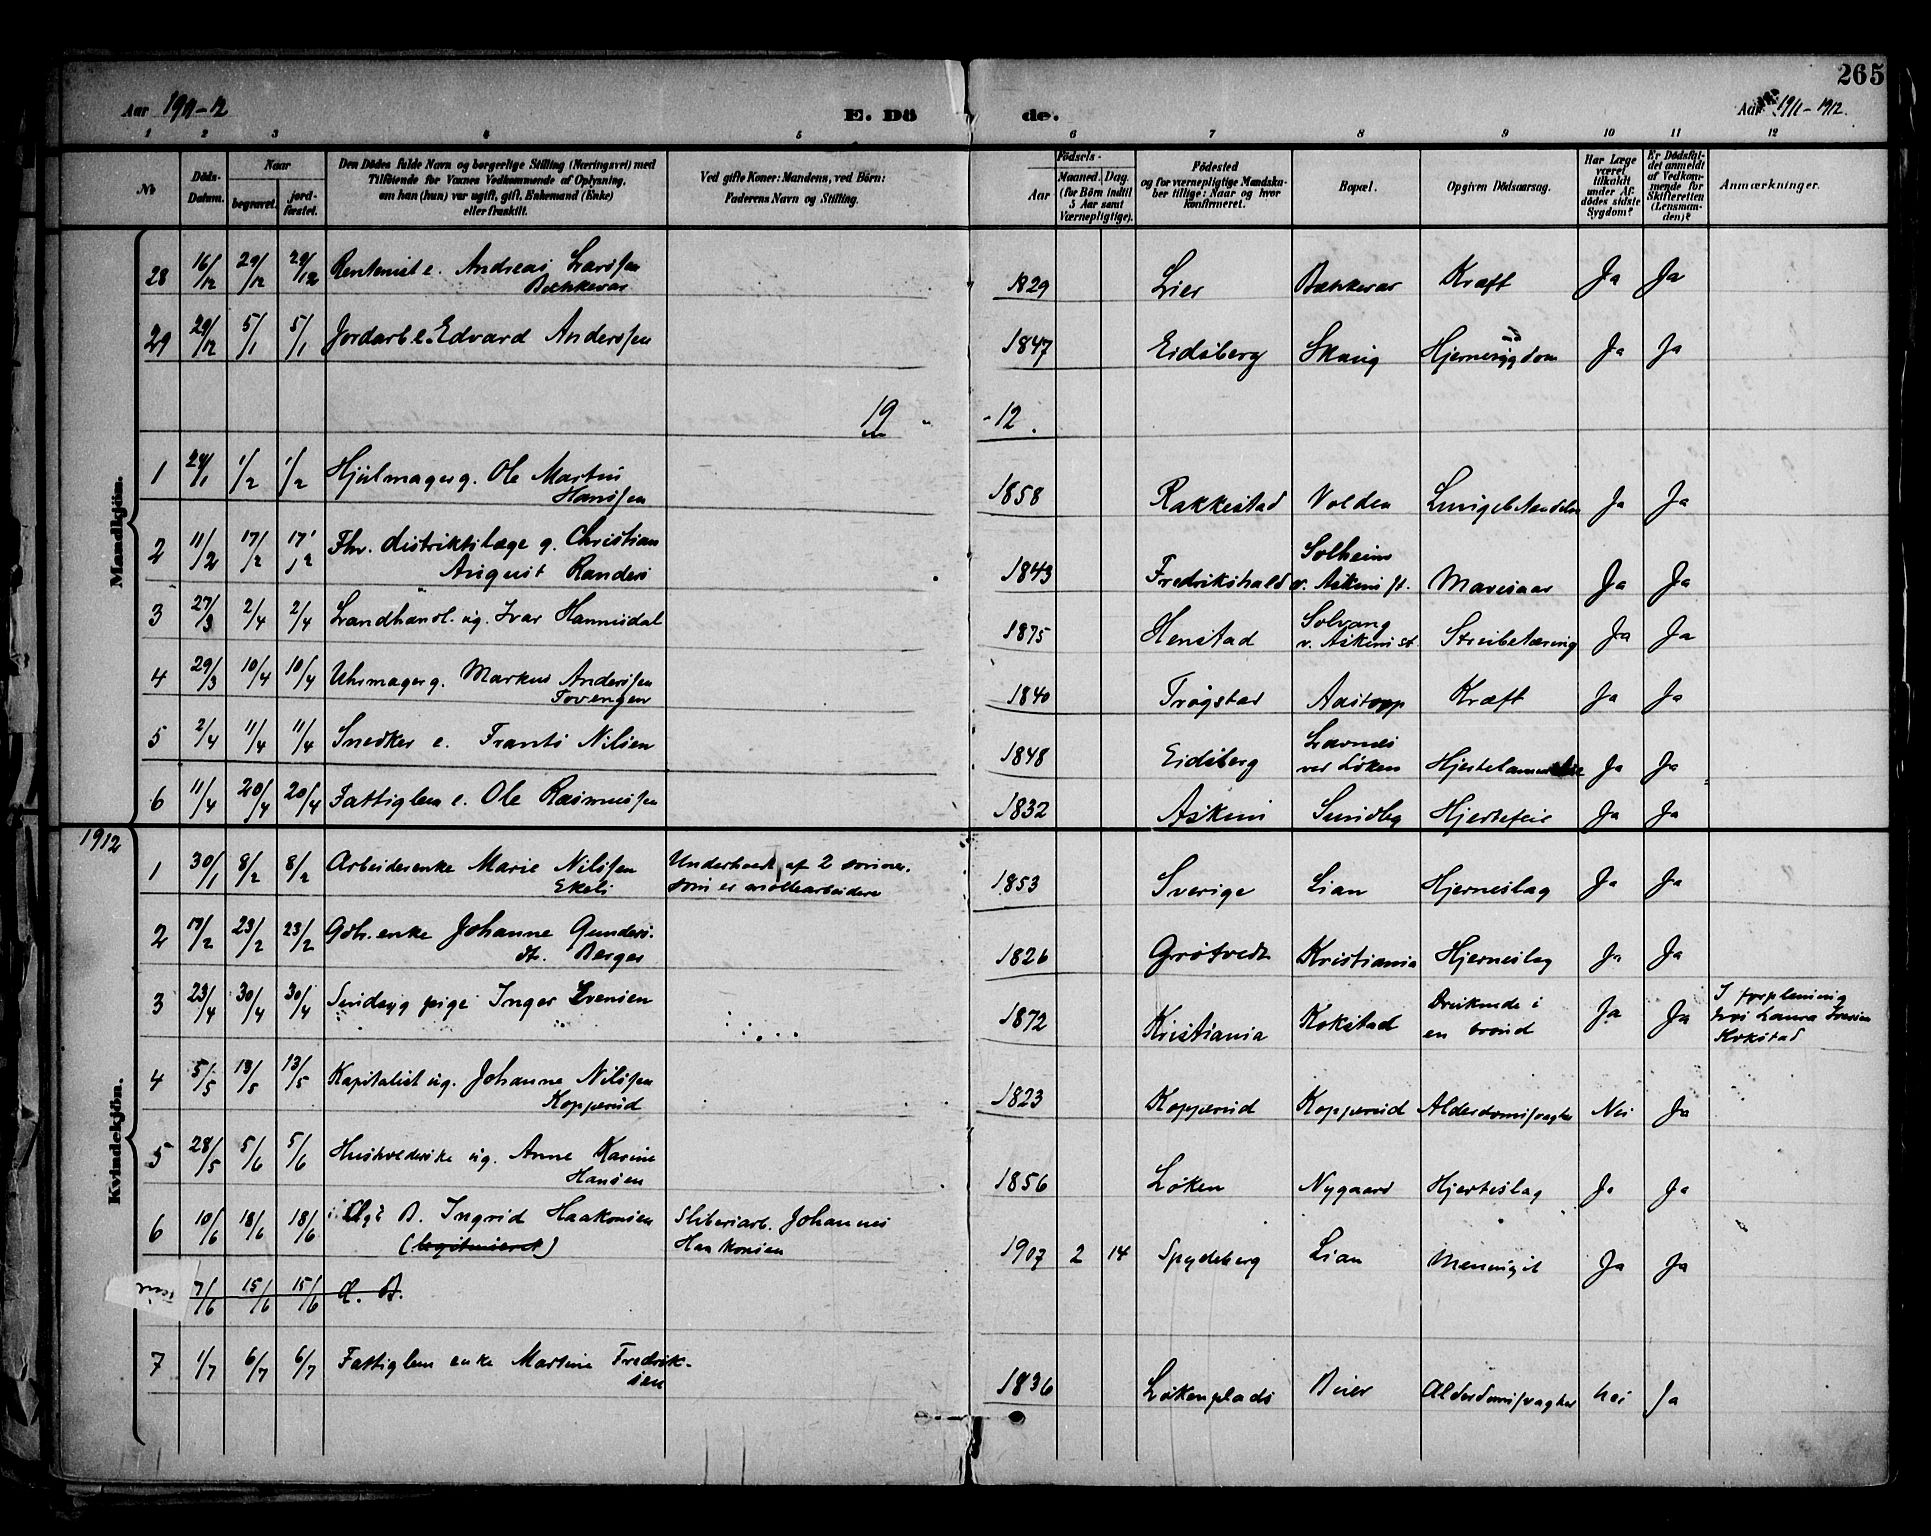 265
Aar 1911-12
E. Dö
de.
Aar 1911-1912.
1 2 3 4 5 6 7 8 9 10 11 12
No
Døds-Datum.
Naar
begravet.
jord-fæstet.
Den Dødes fulde Navn og borgerlige Stilling (Næringsvei) med
Tilföiende for Voxnes Vedkommende af Oplysning,
om han (hun) var ugift, gift, Enkemand (Enke)
eller fraskilt.
Ved gifte Koner: Mandens, ved Börn:
Faderens Navn og Stilling.
Födsels-
Aar
Maaned. Dag.
(for Börn indtil
5 Aar samt
Værnepligtige).
Födested
og for værnepligtige Mandska-
ber tillige: Naar og hvor
konfirmeret.
Bopæl.
Opgiven Dödsaarsag.
Har Læge
været
tilkaldt
under Af-
dödes sidste
Sygdom?
Er Dödsfal-
det anmeldt
af Vedkom-
mende for
Skifteretten
(Lensman-
den)?
Anmærkninger.
Mandkjön.
28 16/12 29/12 29/12 Rentenist e. Andreas Larsſen
Bækkevar
1829 Lier Bækkevar Kræft Ja Ja
29 29/12 5/1 5/1 Jordarb e. Edvard Andersſen 1847 Eidsberg Skaug Hjernesygdom Ja Ja
19 - 12.
1 24/1 1/2 1/2 Hjulmager g. Ole Martin
Hansſen
1858 Rakkestad Volden Lungebetændelse Ja Ja
2 11/2 17/2 17/2 Fhv. distriktslæge g. Christian
August Randers
1843 Fredrikshald Solheim
v. Askim st. Mavesaar Ja Ja
3 27/3 2/4 2/4 Landhandl. ug. Ivar Hannisdal 1875 Henstad Solvang
v. Askim st. Strubetæring Ja Ja
4 29/3 10/4 10/4 Uhrmager g. Markus Andersſen
Tovengen
1840 Trøgstad Aastopp Kræft Ja Ja
5 2/4 11/4 11/4 Snedker e. Frants Nilsen 1848 Eidsberg
ved Løken Ja Ja
6 11/4 20/4 20/4 Fattiglem e. Ole Rasmusſen 1832 Askim Sundby Hjertefeil Ja Ja
1912
Kvindekjön.
1 30/1 8/2 8/2 Arbeiderenke Marie Nilsſen
Ekeli
Underholdt af 2 sønner.
som er møllearbeidere
1853 Sverige Lian Hjerneslag Ja Ja
2 17/2 23/2 23/2 Gdbr. enke Johanne Gunders.
dtr. Berger
1826 Grøtvedt Kristiania Hjerneslag Ja Ja
3 23/4 30/4 30/4 Sindsyg pige Inger Svensen 1872 Kristiania Kokstad Druknede i
en brønd Ja Ja I forpleining
hos Laura Svensen
Kokstad
4 5/5 13/5 13/5 Kapitalist ug. Johanne Nilsſen
Kopperud
1823 Kopperud Kopperud Alderdomsſvaghed Nei Ja
5 28/5 5/6 5/6 Husholderske ug. Anne Karine
Hansen
1856 Løken Nygaard Hjerteslag Ja Ja
6 10/6 18/6 18/6 Ægt B. Ingrid Haakonsen
(legitimeret)
Sliberiarb. Johannes
Haakonsen
1907 2 14 Spydeberg Lian Meningit Ja Ja
7/6 15/6 15/6 d. B.
7 1/7 6/7 6/7 Fattiglem enke Martine Fredrik-
sen
1836 Løkenplads Buer Alderdomsſvaghed Nei Ja